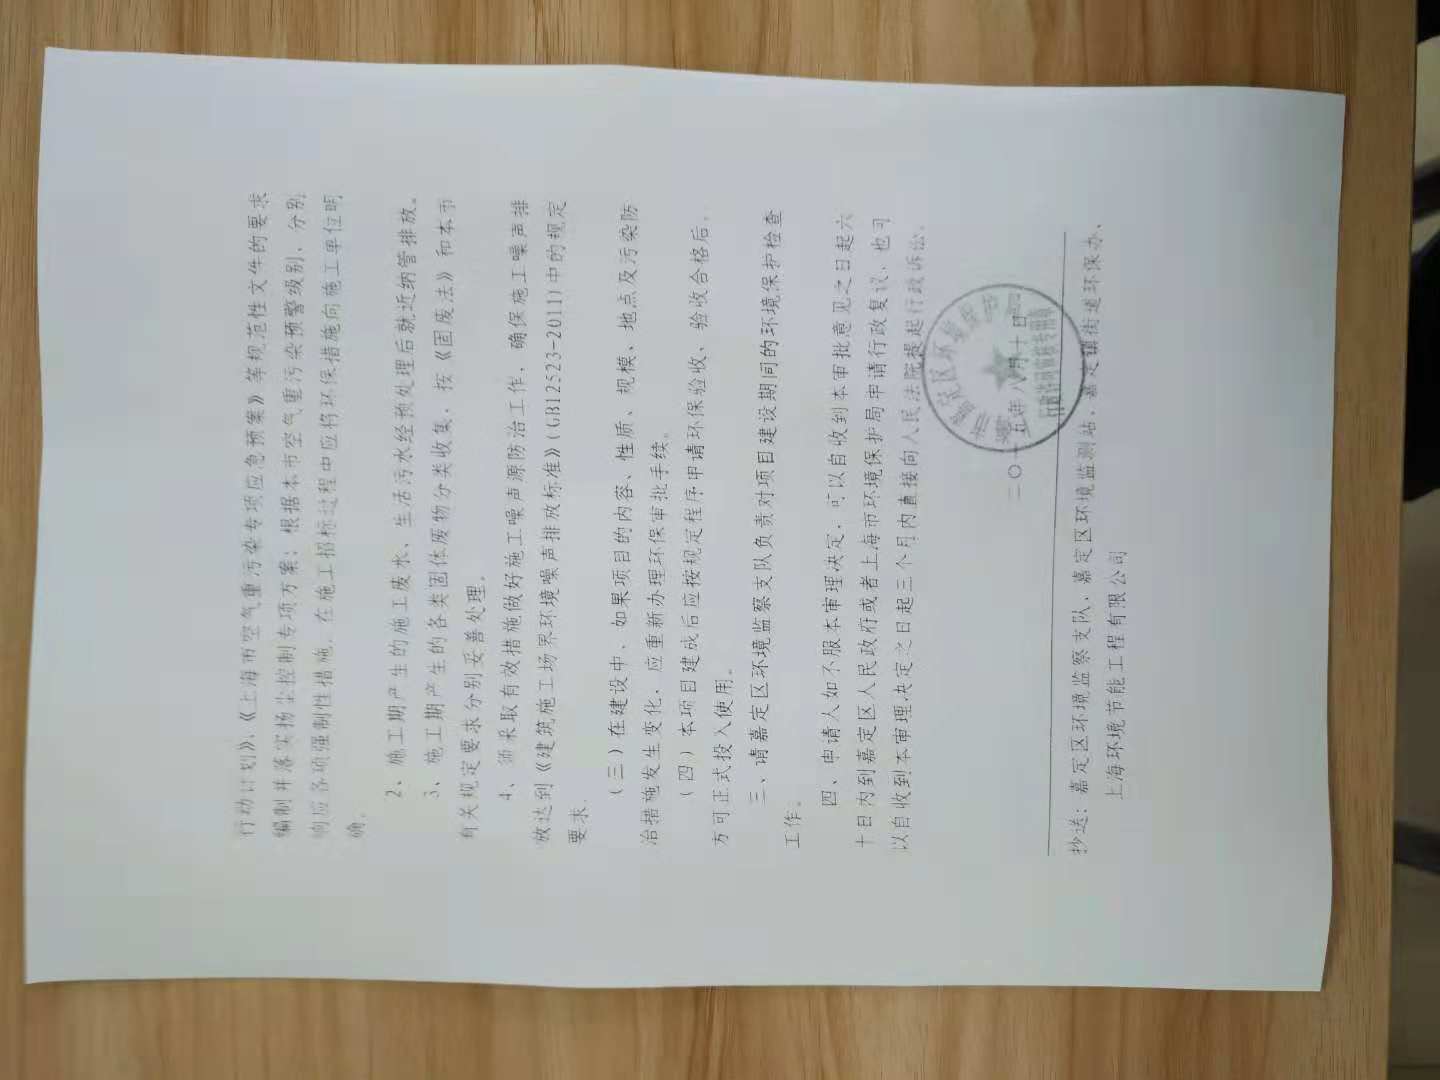 行动计划》、《上海市空气重污染专项应急预案》等规范性文件的要求
编制并落实扬尘控制专项方案；根据本市空气重污染预警级别，分别
响应各项强制性措施。在施工招标过程中应将环保措施向施工单位明
确。
2、施工期产生的施工废水、生活污水经预处理后就近纳管排放。
3、施工期产生的各类固体废物分类收集，按《固废法》和本市
有关规定要求分别妥善处理。
4、须采取有效措施做好施工噪声源防治工作，确保施工噪声排
放达到《建筑施工场界环境噪声排放标准》(GB12523-2011)中的规定
要求。
（三）在建设中，如果项目的内容、性质、规模、地点及污染防
治措施发生变化，应重新办理环保审批手续。
（四）本项目建成后应按规定程序申请环保验收，验收合格后，
方可正式投入使用。
三、请嘉定区环境监察支队负责对项目建设期间的环境保护检查
工作。
四、申请人如不服本审理决定，可以自收到本审批意见之日起六
十日内到嘉定区人民政府或者上海市环境保护局申请行政复议，也可
以自收到本审理决定之日起三个月内直接向人民法院提起行政诉讼。
二〇一五年八月十日
抄送：嘉定区环境监察支队，嘉定区环境监测站，嘉定镇街道环保办、
上海环境节能工程有限公司